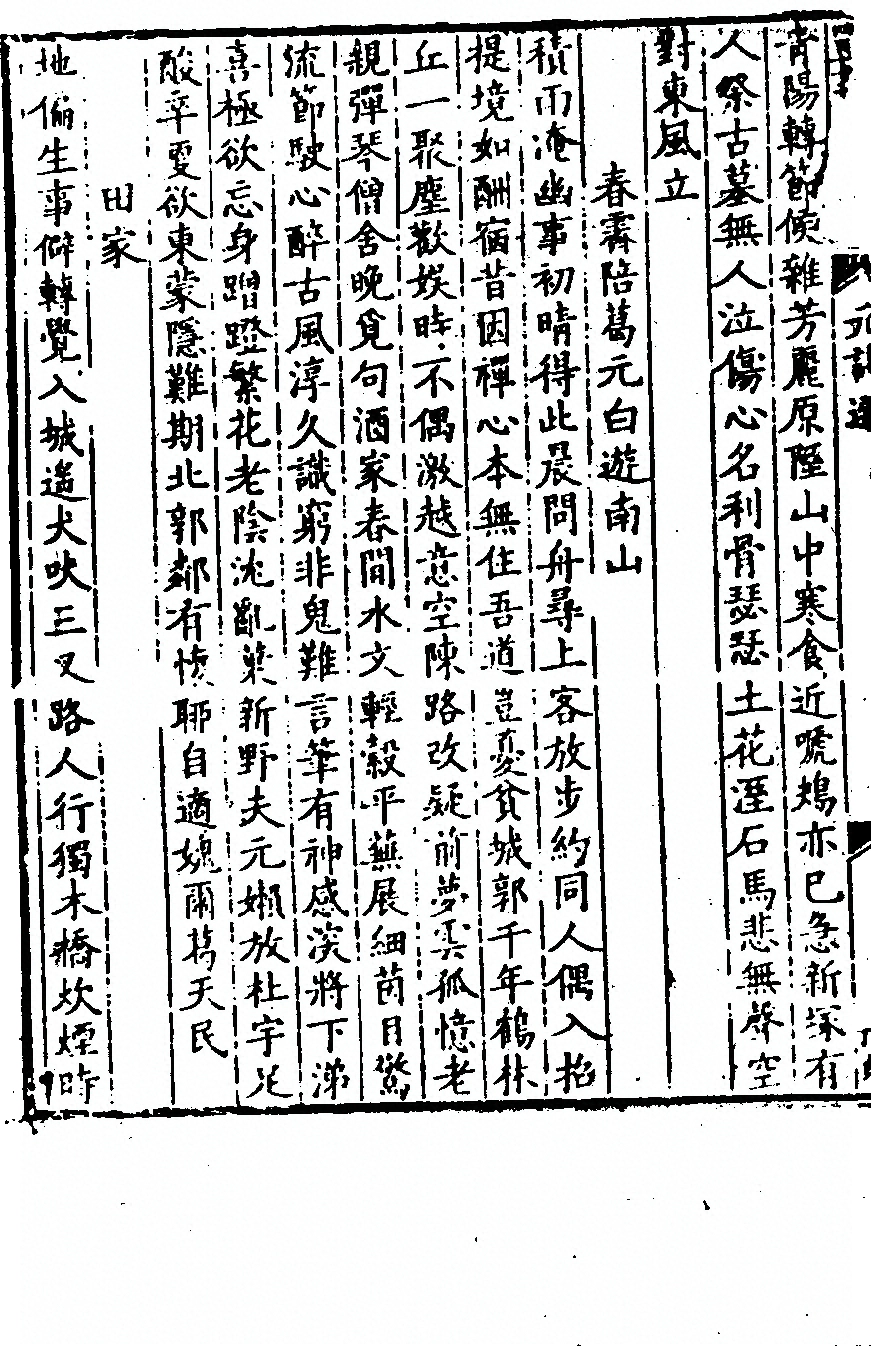 青陽轉節候雜芳麗原隰山中寒食近鳴鴂亦已急新塚有
人祭古墓無人泣傷心名利骨瑟瑟土花溼石馬悲無聲空
對東風立
春霽陪葛元白遊南山
積雨淹幽事初晴得此晨問舟尋上客放步約同人偶入招
提境如酬宿昔因禪心本無住吾道豈憂貧城郭千年鶴林
丘一聚塵歡娛時不偶激越意空陳路改疑前夢雲孤憶老
親彈琴僧舍晚覓句酒家春間水文輕縠平蕪展細茵目驚
流節駛心醉古風淳久識窮非鬼難言筆有神感深將下涕
喜極欲忘身蹭蹬繁花老陰沈亂葉新野夫元嬾放杜宇足
酸辛更欲東蒙隱難期北郭鄰有懷聊自適媿爾葛天民
田家
地偏生事僻轉覺入城遙犬吠三叉路人行獨木橋炊煙時